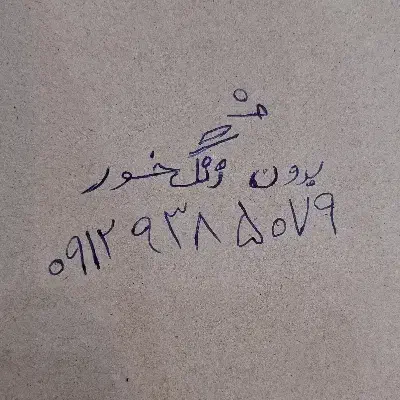 بدون زنگ خور
۰۹۱۲ ۹۳۸ ۵۰۷۹